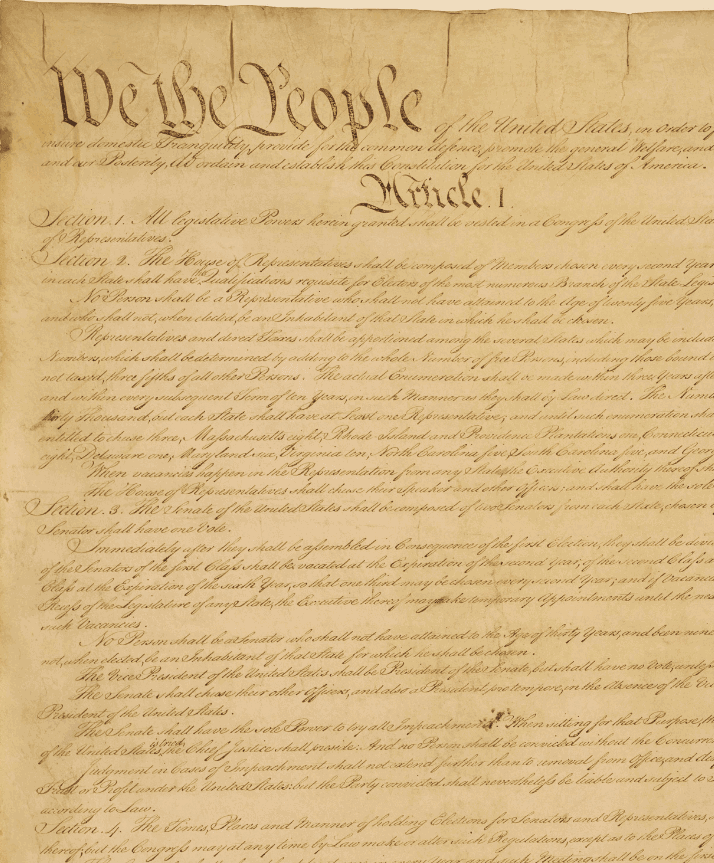 We the People of the United States, in Order to
insure domestic Tranquility, provide for the common defence, promote the general Welfare, and
and our Posterity, do ordain and establish this Constitution for the United States of America.
Article. I.
Section. 1. All legislative Powers herein granted shall be vested in a Congress of the United
of Representatives.
Section. 2. The House of Representatives shall be composed of Members chosen every second Year
in each State shall have the Qualifications requisite for Electors of the most numerous Branch of the State
No Person shall be a Representative who shall not have attained to the Age of twenty five Years,
and who shall not, when elected, be an Inhabitant of that State in which he shall be chosen.
Representatives and direct Taxes shall be apportioned among the several States which may be
Numbers, which shall be determined by adding to the whole Number of free Persons, including those bound
not taxed, three fifths of all other Persons. The actual Enumeration shall be made within three Years
and within every subsequent Term of ten Years, in such Manner as they shall by Law direct. The
thirty Thousand, but each State shall have at Least one Representative; and until such enumeration
entitled to chuse three, Massachusetts eight, Rhode-Island and Providence Plantations one, Connecticut
eight, Delaware one, Maryland six, Virginia ten, North Carolina five, South Carolina five, and
When vacancies happen in the Representation from any State, the Executive Authority thereof
The House of Representatives shall chuse their Speaker and other Officers; and shall have the sole
Section. 3. The Senate of the United States shall be composed of two Senators from each State, chosen
Senator shall have one Vote.
Immediately after they shall be assembled in Consequence of the first Election, they shall be
of the Senators of the first Class shall be vacated at the Expiration of the second Year, of the second Class
Class at the Expiration of the sixth Year, so that one third may be chosen every second Year; and if
Recess of the Legislature of any State, the Executive thereof may make temporary Appointments until the
such Vacancies.
No Person shall be a Senator who shall not have attained to the Age of thirty Years, and been
not, when elected, be an Inhabitant of that State for which he shall be chosen.
The Vice President of the United States shall be President of the Senate, but shall have no Vote,
The Senate shall chuse their other Officers, and also a President pro tempore, in the Absence of the
President of the United States.
The Senate shall have the sole Power to try all Impeachments. When sitting for that Purpose,
of the United States is tried, the Chief Justice shall preside: And no Person shall be convicted without the
Judgment in Cases of Impeachment shall not extend further than to removal from Office, and
Trust or Profit under the United States: but the Party convicted shall nevertheless be liable and subject to
according to Law.
Section. 4. The Times, Places and Manner of holding Elections for Senators and Representatives,
thereof; but the Congress may at any time by Law make or alter such Regulations, except as to the Places of